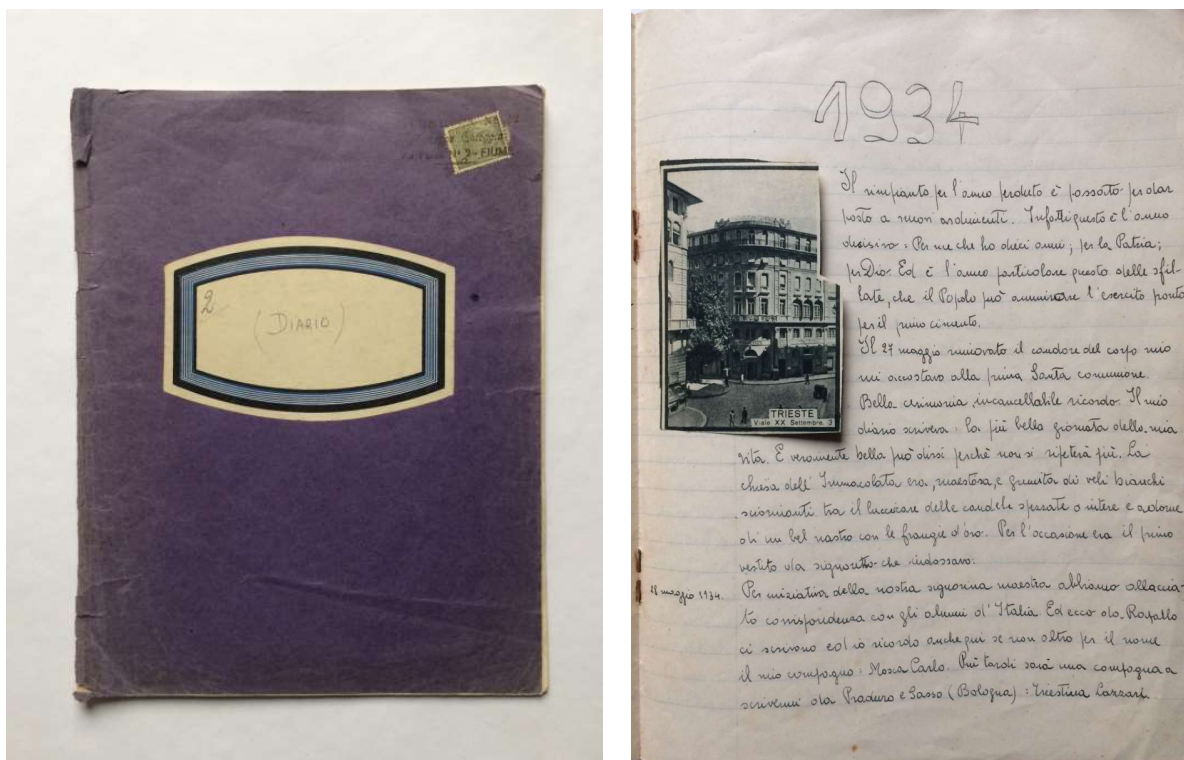 N° 9 - FIUME
2
(DIARIO)
1934
Il rimpianto per l'anno perduto è passato per dar
posto a nuovi ardimenti. Infatti questo è l'anno
decisivo: Per me che ho dieci anni; per la Patria;
per Dio. Ed è l'anno particolare questo delle sfi-
late, che il Popolo può ammirare l'esercito pronto
per il primo cimento.
Il 27 maggio rinnovato il candore del corpo mio
mi accostavo alla prima Santa comunione.
Bella cerimonia, incancellabile ricordo. Il mio
diario scriveva: la più bella giornata della mia
vita. E veramente bella può dirsi perchè non si ripeterà più. La
chiesa dell'Immacolata era, maestosa, e gremita di veli bianchi
tra il luccicare delle candele spezzate o intere e adorne
di un bel nastro con le frangie d'oro. Per l'occasione era il primo
vestito da signoretto che indossavo.
TRIESTE
Viale XX Settembre, 3
28 maggio 1934. Per iniziativa della nostra signorina maestra abbiamo allaccia-
to corrispondenza con gli alunni d'Italia. Ed ecco da Rapallo
ci scrivono ed io ricordo anche qui se non altro per il nome
il mio compagno: Mosca Carlo. Più tardi sarà una compagna a
scrivermi da Praduro e Sasso (Bologna): Triestina Lazzari